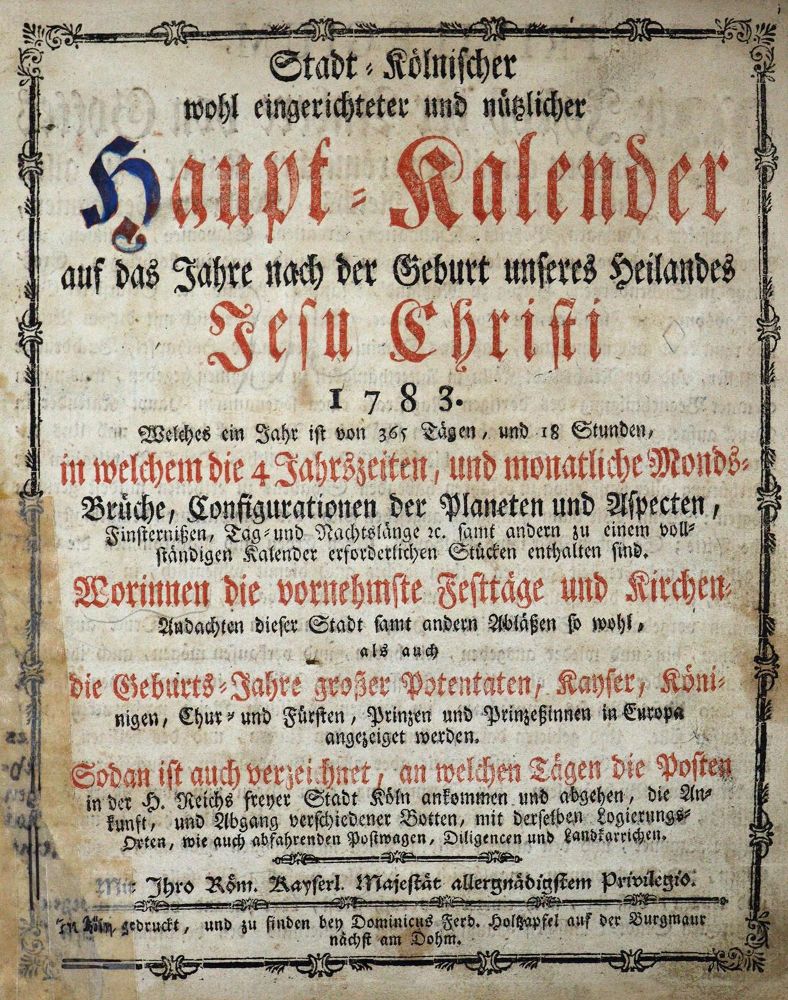 Stadt-Kölnischer
wohl eingerichteter und nützlicher
Haupt-Kalender
auf das Jahre nach der Geburt unseres Heilandes
Jesu Christi
1783.
Welches ein Jahr ist von 365 Tägen, und 18 Stunden,
in welchem die 4 Jahrszeiten, und monatliche Monds-
Brüche, Configurationen der Planeten und Aspecten,
Finsternißen, Tag- und Nachtslänge ꝛc. samt andern zu einem voll-
ständigen Kalender erforderlichen Stücken enthalten sind.
Worinnen die vornehmste Festtäge und Kirchen-
Andachten dieser Stadt samt andern Abläßen so wohl,
als auch
die Geburts-Jahre großer Potentaten, Kayser, Köni-
nigen, Chur- und Fürsten, Prinzen und Prinzeßinnen in Europa
angezeiget werden.
Sodan ist auch verzeichnet, an welchen Tägen die Posten
in der H. Reichs freyer Stadt Köln ankommen und abgehen, die An-
kunft, und Abgang verschiedener Botten, mit derselben Logierungs-
Orten, wie auch abfahrenden Postwagen, Diligencen und Landkarrichen.
Mit Ihro Röm. Kayserl. Majestät allergnädigstem Privilegio.
In Köln gedruckt, und zu finden bey Dominicus Ferd. Holtzapfel auf der Burgmaur
nächst am Dohm.